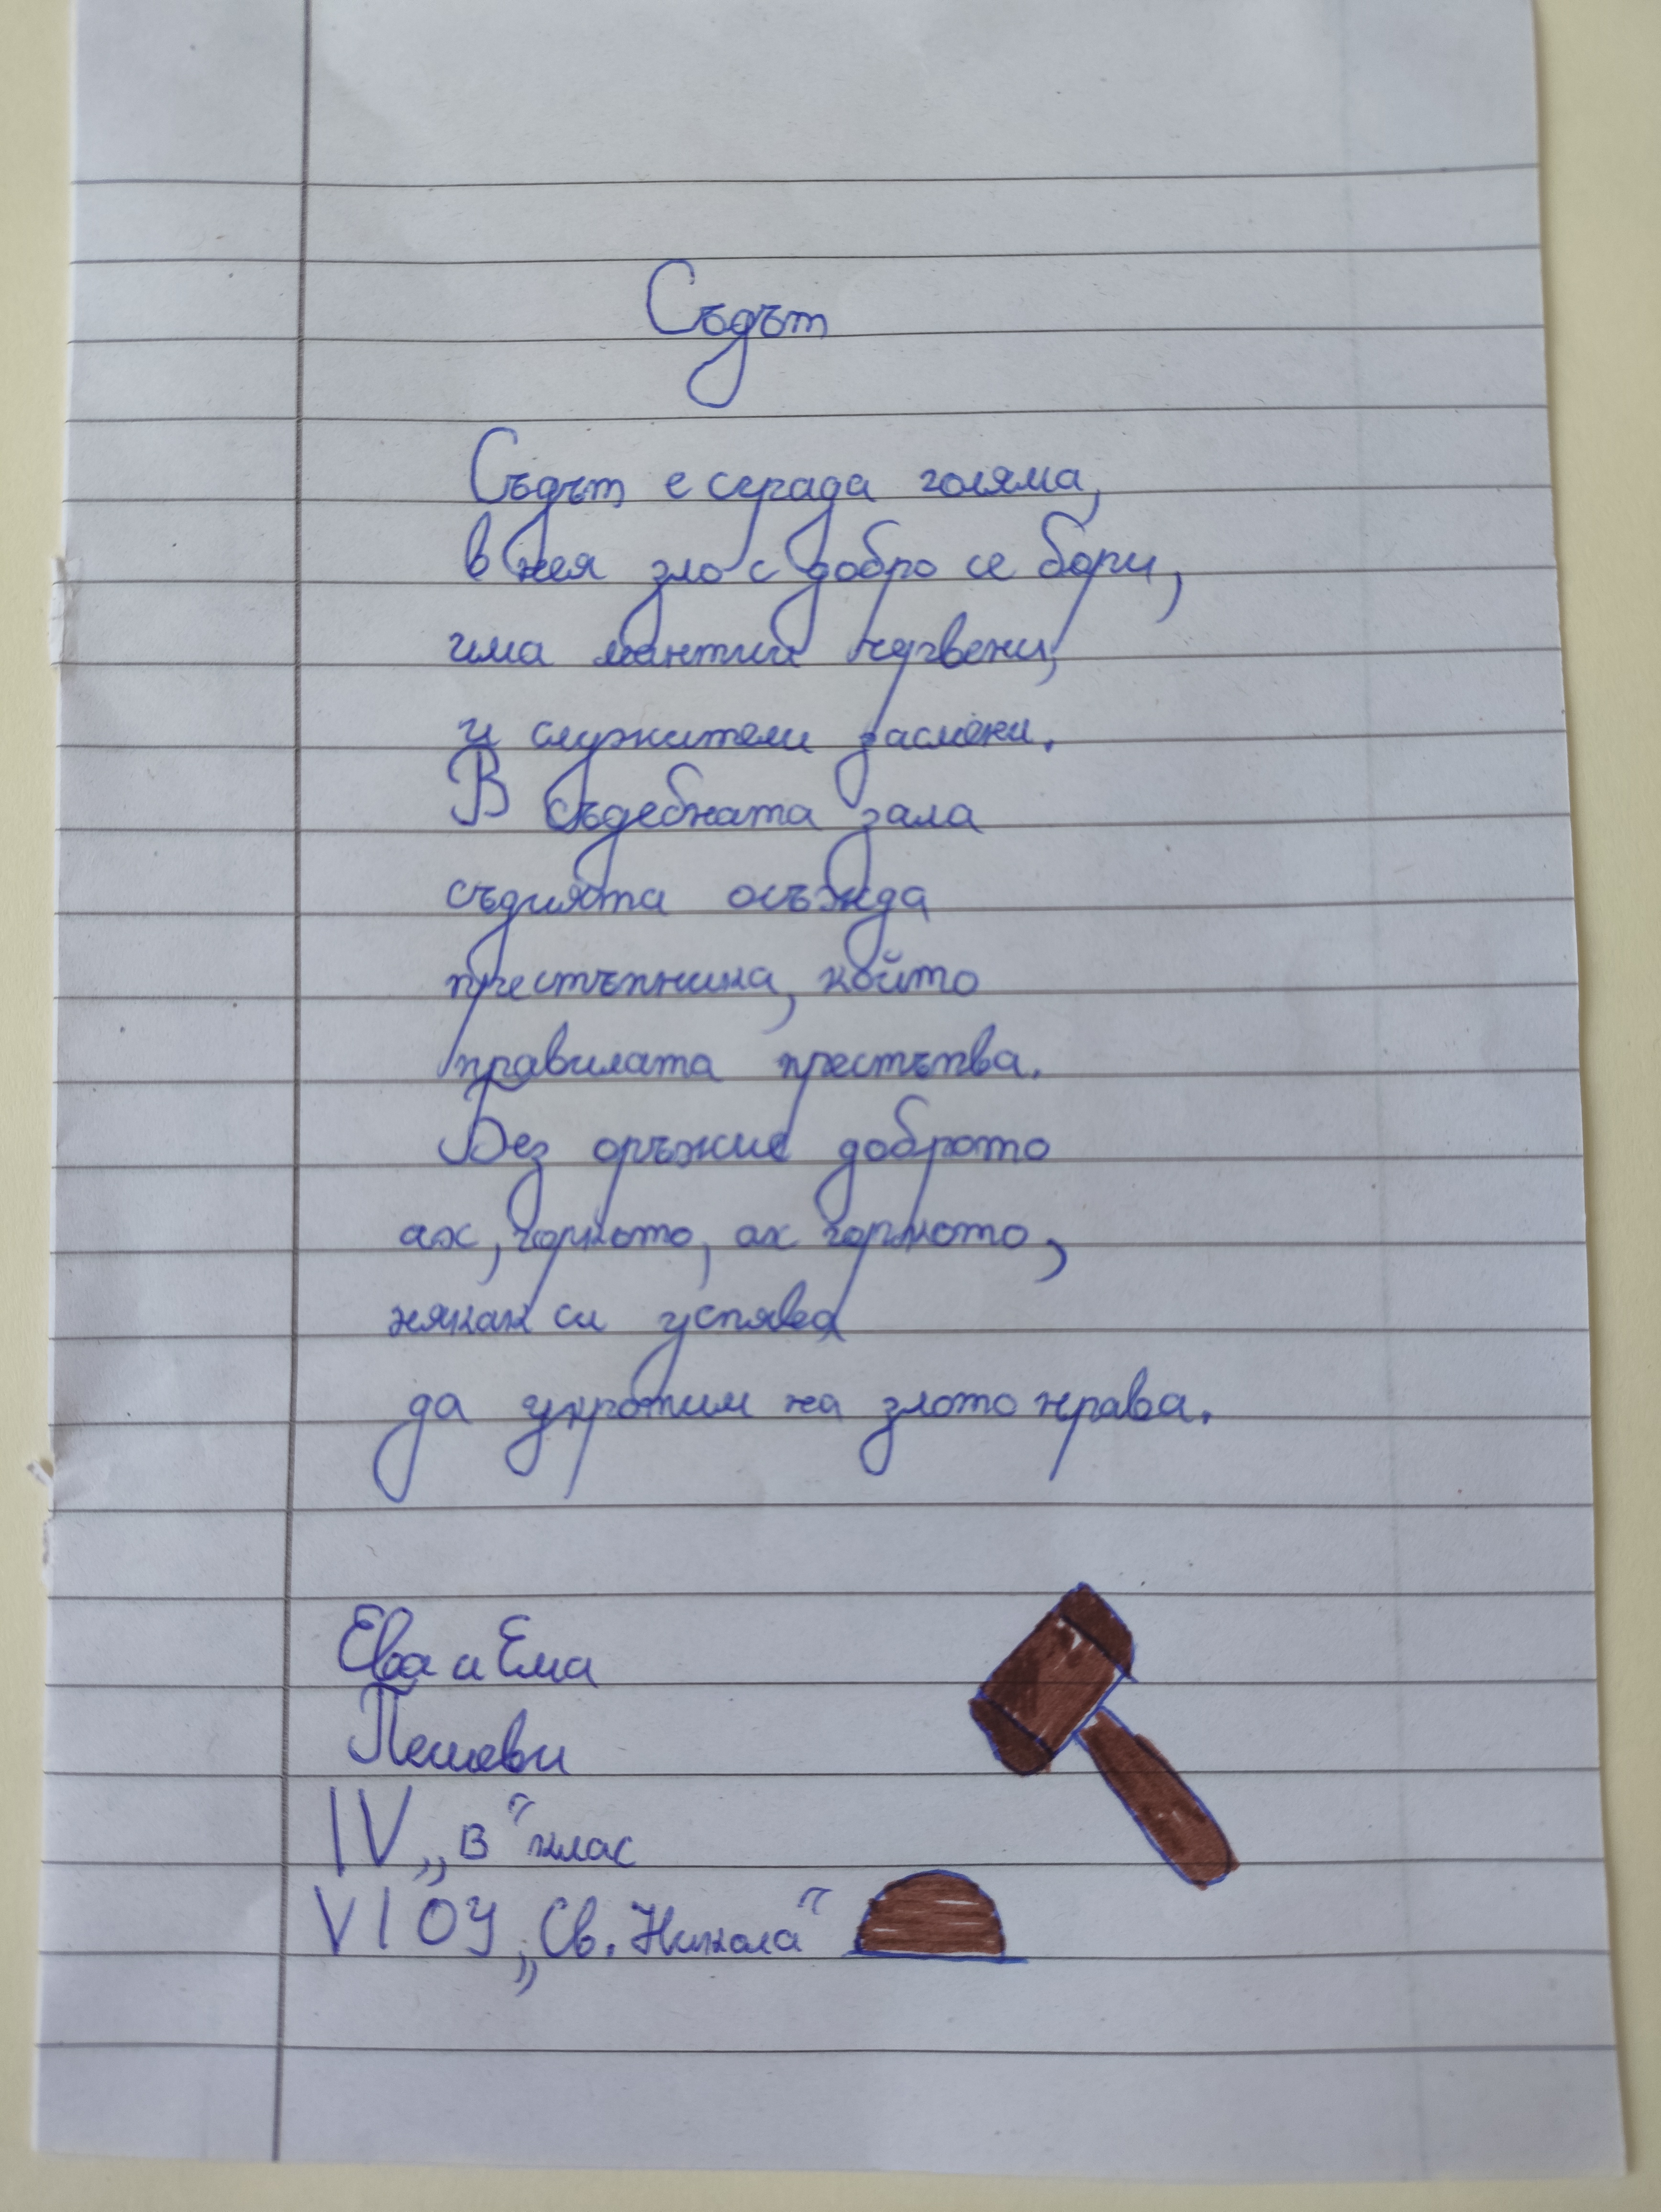 Съдът
Съдът е сграда голяма,
в нея зло с добро се бори,
има мантии червени,
и служители засмени.
В съдебната зала
съдията осъжда
престъпника, който
правилата престъпва.
Без оръжие доброто
ах, горкото, ах горкото,
някак си успява
да укротим на злото нрава.
Ева и Ема
Пешеви
IV „В“ клас
VI ОУ „Св. Никола“